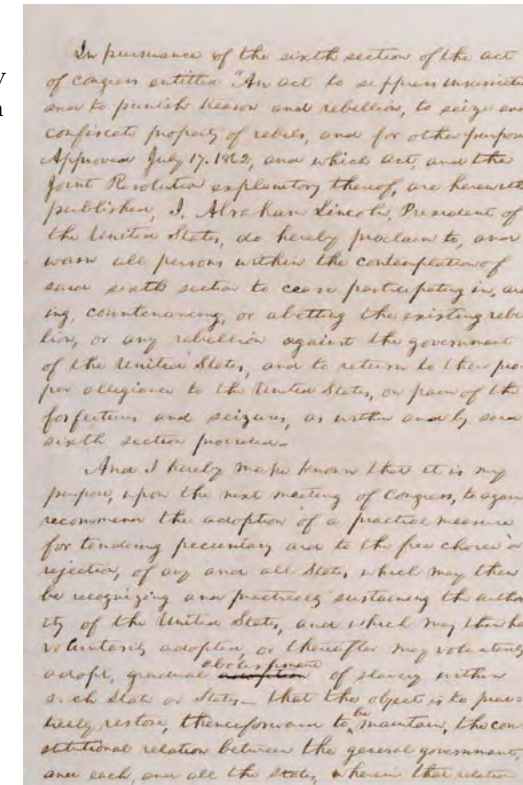 y
n
In pursuance of the sixth section of the act
of congress entitled "An act to suppress insurrecti
and to punish treason and rebellion, to seize and
confiscate property of rebels, and for other purpose
Approved July 17. 1862, and which act, and the
Joint Resolution explanatory thereof, are herewith
published, I, Abraham Lincoln, President of
the United States, do hereby proclaim to, and
warn all persons within the contemplation of
said sixth section to cease participating in, aid
ing, countenancing, or abetting the existing rebel
lion, or any rebellion against the government
of the United States, and to return to their pro-
per allegiance to the United States, on pain of the
forfeitures and seizures, as within and by said
sixth section provided—
And I hereby make known that it is my
purpose, upon the next meeting of Congress, to again
recommend the adoption of a practical measure
for tendering pecuniary aid to the free choice or
rejection, of any and all States, which may then
be recognizing and practically sustaining the author
ity of the United States, and which may then have
voluntarily adopted, or thereafter may voluntarily
adopt, gradual adoption abolishment of slavery within
such State or States— that the object is to prac-
tically restore, thenceforward to be maintain, the con-
stitutional relation between the general government,
and each, and all the states, wherein that relation